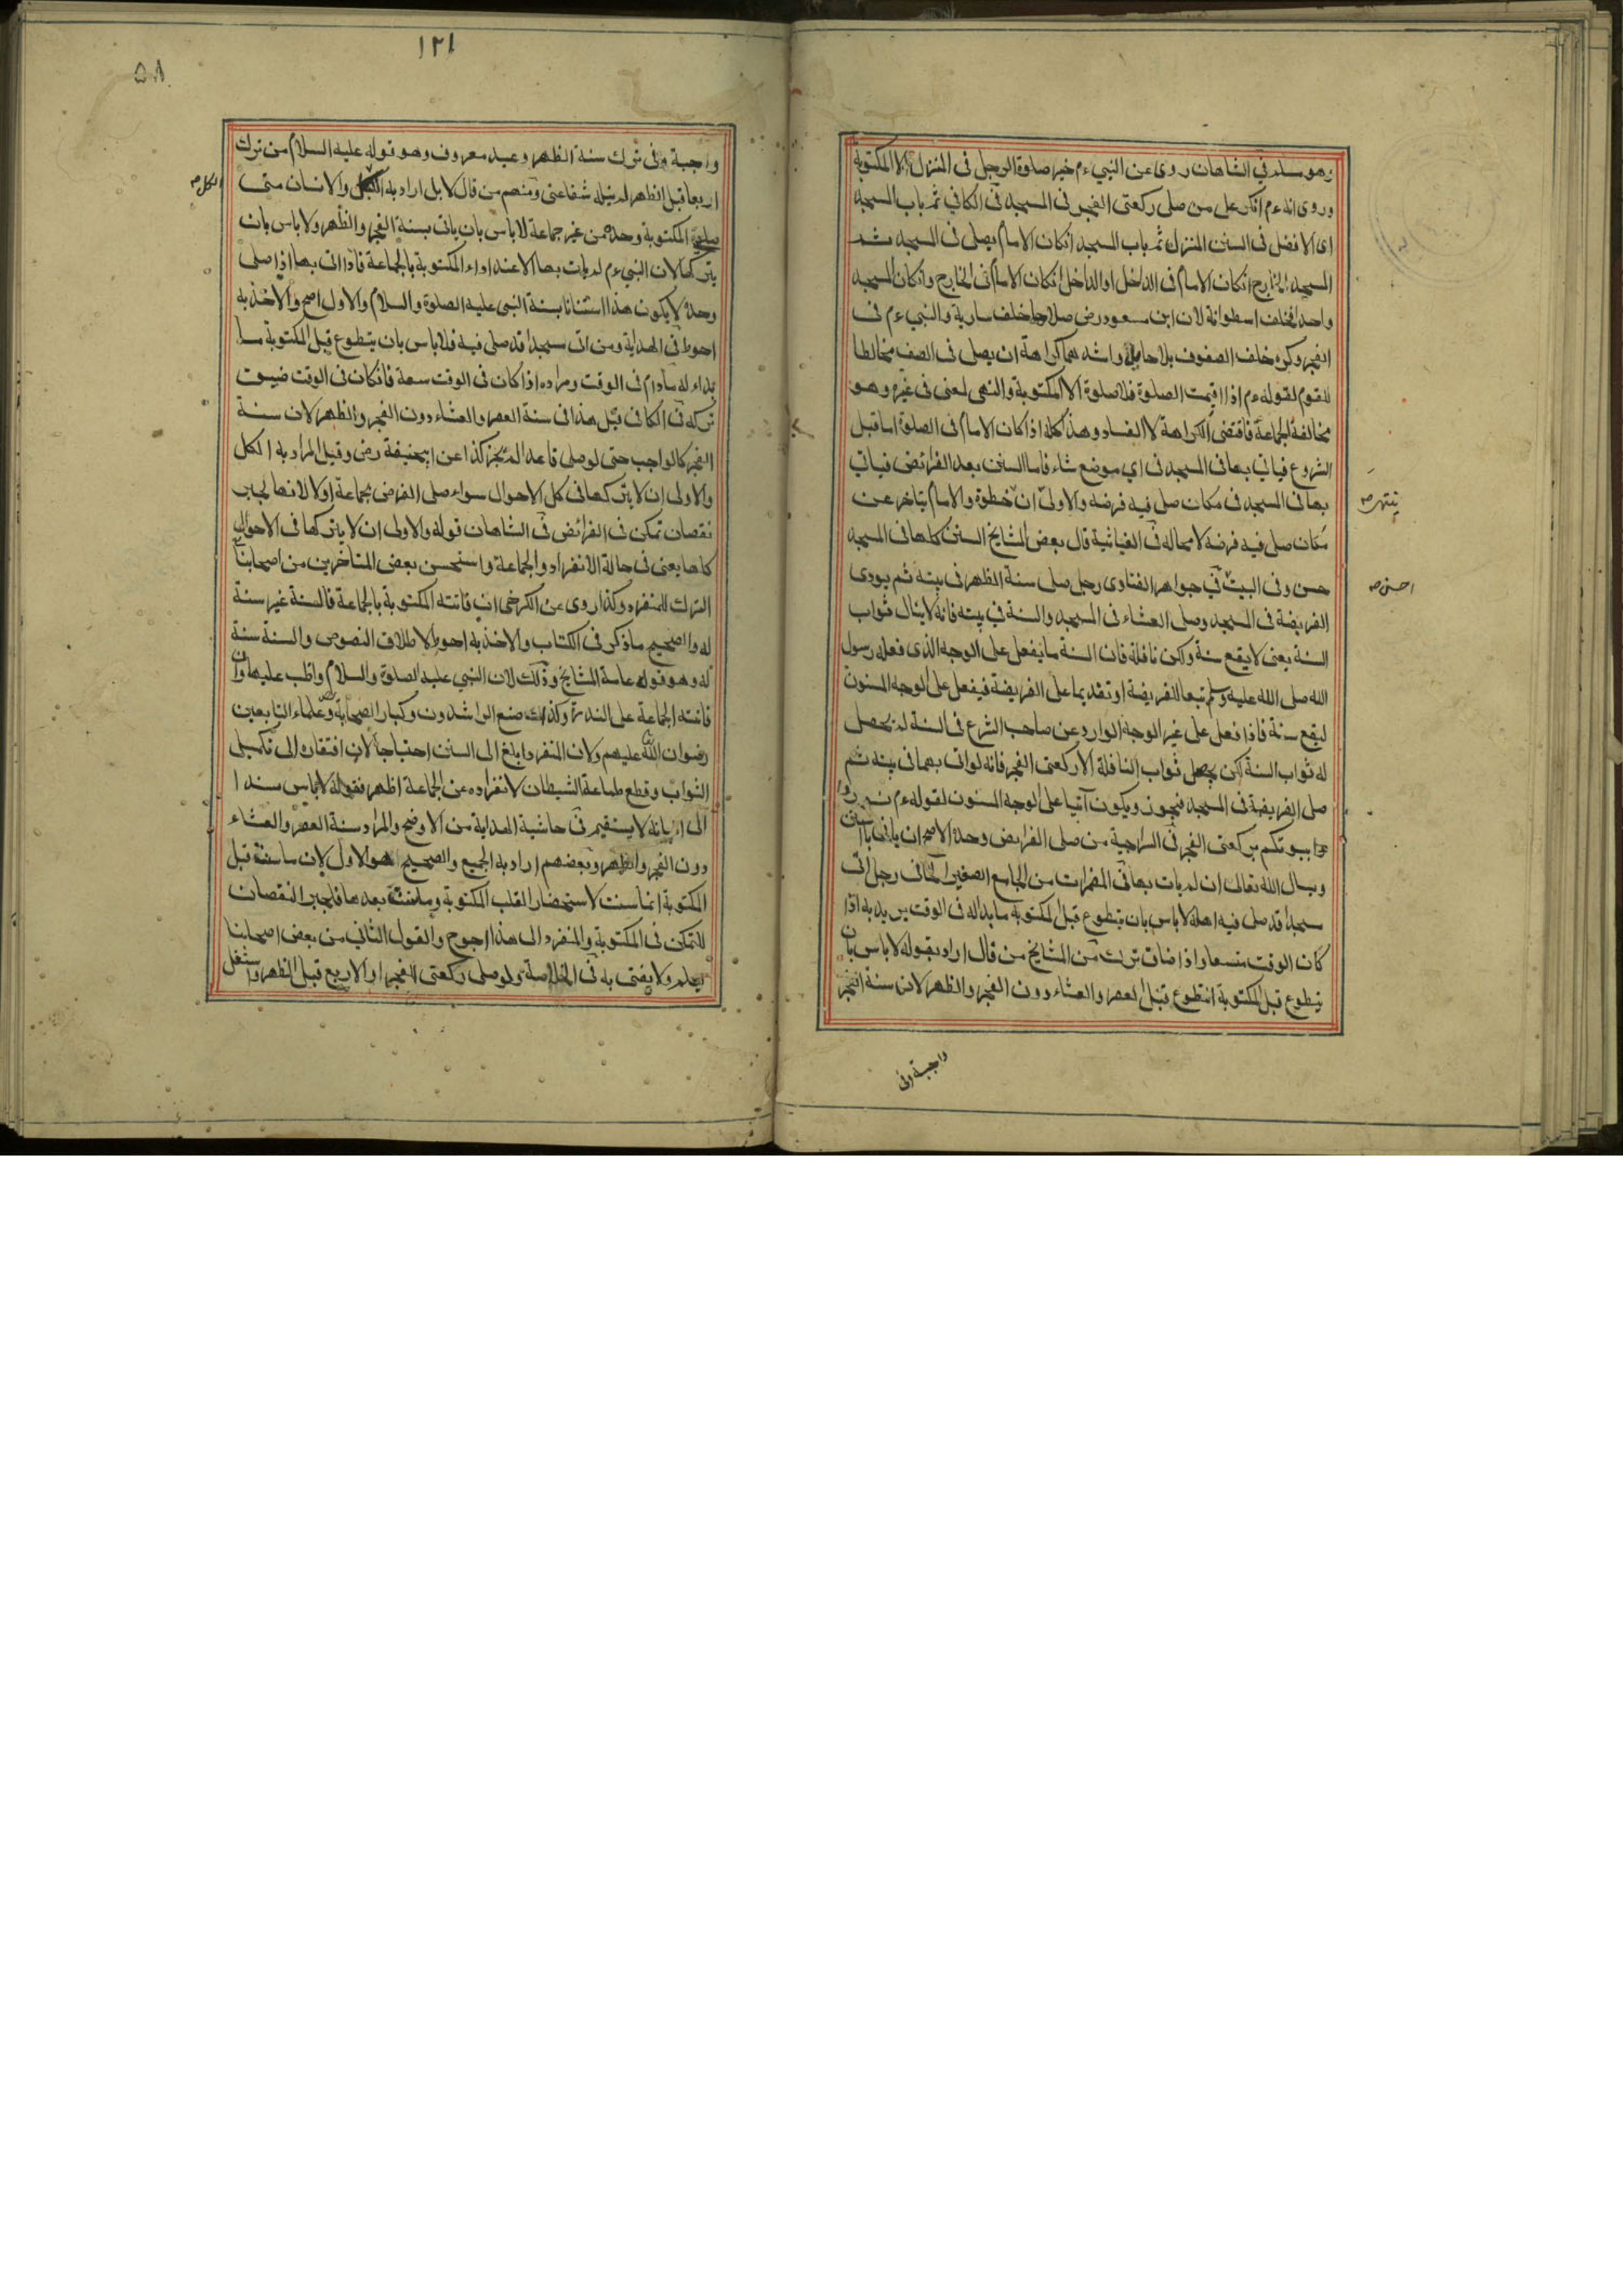 وهو سلم في الشاهان روى عن النبي ءم خير صلوة الرجل فى المنزل الا المكتوبة
وروى انه ءم انكر على من صلى ركعتى الفجر فى المسجد فى الكافي ثم باب المسجد
اى الافضل فى السنن المنزل ثم باب المسجد انكان الامام يصلى فى المسجد ثم
المسجد الخارج انكان الامام فى الداخل او الداخل انكان الامام فى الخارج وانكان المسجد
واحد افخلف اسطوانة لان ابن مسعود رض صلاها خلف سارية والنبي ءم فى
الفجر وكره خلف الصفوف بلا حايل واشدهما كراهة ان يصلى فى الصف مخالطا
للقوم لقوله ءم اذا اقيمت الصلوة فلا صلوة الا المكتوبة والنهى لمعنى فى غيره وهو
مخالفة الجماعة فاقتضى الكراهة لا الفساد وهذا كله اذا كان الامام فى الصلوة اما قبل
الشروع فياتي بها فى المسجد فى اي موضع شاء فاما السنن بعد الفرائض فياتي
بها فى المسجد فى مكان صلى فيه فرضه والاولى ان خطوة والامام يتاخر عن
يتنحى صح
مكان صلى فيه فرضه لا محاله فى الغياثية قال بعض المشايخ السنن كلها فى المسجد
حسن وفى البيت في جواهر الفتاوى رجل صلى سنة الظهر فى بيته ثم يودى
احسن صح
الفريضة فى المسجد وصلى العشاء فى المسجد والسنة في بيته فانه لا ينال ثواب
السنة يعنى لا يقع سنة ولكن نافلة فان السنة ما يفعل على الوجه الذى فعله رسول
الله صلى الله عليه وسلم تبعا للفريضة او تقديما على الفريضة فيفعل على الوجه المسنون
ليقع سنة فاذا فعل على غير الوجه الوارد عن صاحب الشرع فى السنة لم يحصل
له ثواب السنة لكن يحصل ثواب النافلة الا ركعتى الفجر فانه لو اتى بهما فى بيته ثم
صلى الفريضة فى المسجد فيجوز ويكون آتيا على الوجه المسنون لقوله ءم نوروا
بيوتكم بركعتى الفجر فى السراجية من صلى الفرايض وحده الاصح ان ياتى بالسنن
ويسال الله تعالى ان لم يات بها فى المضمرات من الجامع الصغير الخانى رجل اتى
مسجدا قد صلى فيه اهله لا باس بان يتطوع قبل المكتوبة ما بداله فى الوقت يريد به اذا
كان الوقت متسعا واذا ضاق ترك من المشايخ من قال اراد بقوله لا باس بان
يتطوع قبل المكتوبة التطوع قبل العصر والعشاء دون الفجر والظهر لان سنة الفجر
واجبة وفى
١٢١
٥٨
واجبة وفى ترك سنة الظهر وعيد معروف وهو قوله عليه السلام من ترك
اربعا قبل الظهر لم ينله شفاعتى ومنهم من قال لا بل اراد به الكل والانسان متى
الكل صح
صلى المكتوبة وحده من غير جماعة لا باس بان ياتى بسنة الفجر والظهر ولا باس بان
يتركها لان النبي ءم لم يات بها الا عند اداء المكتوبة بالجماعة فاذا اتى بها اذا صلى
وحده لا يكون هذا استنانا بسنة النبى عليه الصلوة والسلام والاول اصح والاخذ به
احوط فى الهداية ومن اتى مسجدا قد صلى فيه فلا باس بان يتطوع قبل المكتوبة ما
بداء له مادام فى الوقت ومراده اذا كان فى الوقت سعة فانكان فى الوقت ضيق
تركه فى الكافى قيل هذا فى سنة العصر والعشاء دون الفجر والظهر لان سنة
الفجر كالواجب حتى لو صلى قاعدا لم يجز كذا عن ابيحنيفة رض وقيل المراد به الكل
والاولى ان لا يتركها فى كل الاحوال سواء صلى الفرض بجماعة او لا لانها لجابر
نقصان تمكن فى الفرائض فى الشاهان قوله والاولى ان لا يتركها فى الاحوال
كلها يعنى فى حالة الانفراد والجماعة واستحسن بعض المتاخرين من اصحابنا
الترك للمنفرد وكذا روى عن الكرخى ان فاتته المكتوبة بالجماعة فالسنة غير سنة
له والصحيح ما ذكر فى الكتاب والاخذ به احوط لاطلاق النصوص والسنة سنة
له وهو قول عامة المشايخ وذلك لان النبي عليه الصلوة والسلام واظب عليها وان
فاتته الجماعة على الندرة وكذلك صنع الراشدون وكبار الصحابة وعلماء التابعين
رضوان الله عليهم ولان المنفرد ابلغ الى السنن احتياجا لان افتقاره الى تكميل
الثواب وقطع طماعة الشيطان لانفراده عن الجماعة اظهر فقوله لا باس سندا
الى انه لا يستقيم فى حاشية الهداية من الاوضح والمراد سنة العصر والعشاء
دون الفجر والظهر وبعضهم اراد به الجميع والصحيح هو الاول لان ما سنت قبل
المكتوبة انما سنت لاستحضار القلب المكتوبة وما سنت بعدها فلجبر النقصان
المتمكن فى المكتوبة والمنفرد الى هذا احوج والقول الثانى من بعض اصحابنا
يعلم ولا يفتى به فى الخلاصة ولو صلى ركعتى الفجر او الاربع قبل الظهر واشتغل